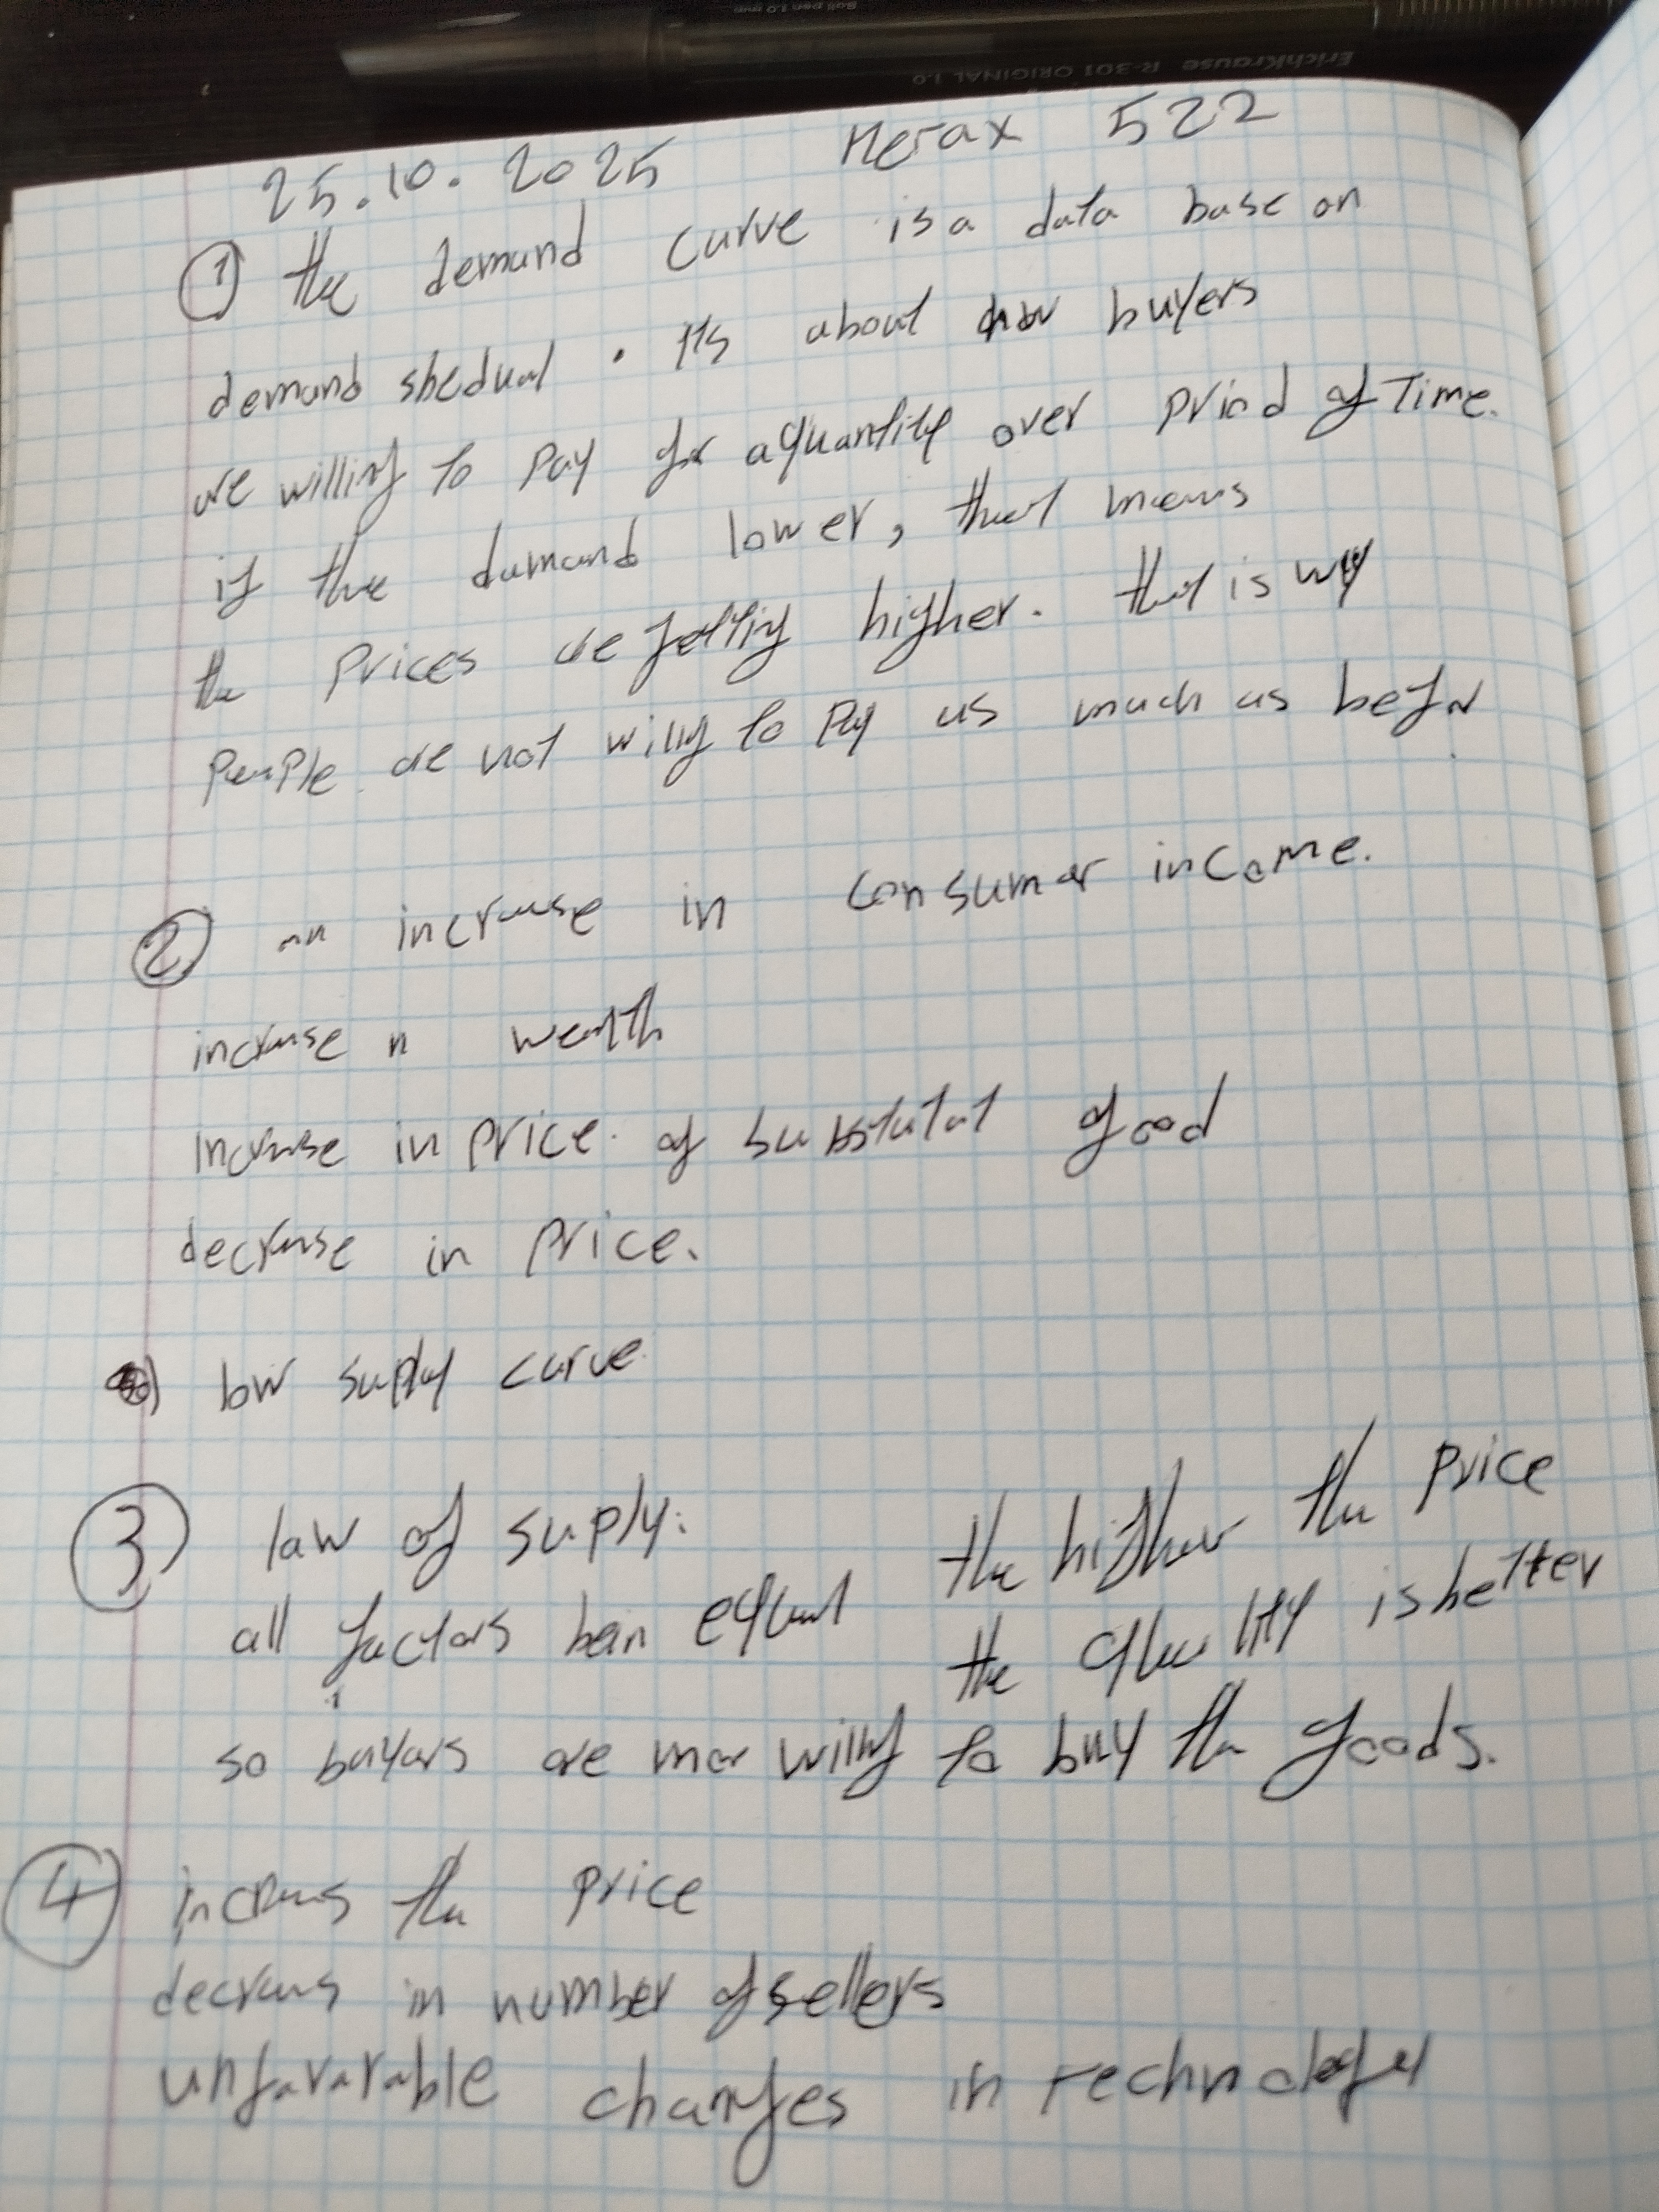 ErichKrause R-301 ORIGINAL 1.0
25.10.2025 Merax 522
① the demand curve is a data base on
demand shedual. Its about how buyers
are willing to pay for a quantity over priod of Time.
if the demand lower, that means
the prices are getting higher. that is wy
people are not willig to pay as much as befor
② an increase in consumer income.
increase n wealth
increase in price of substatat good
decrease in price.
low supply curve.
③ law of supply: the higher the price
all factors bein equal the quality is better
so buyers are mor willig to buy the goods.
④ increas the price
decreas in number of sellers
unfavarable changes in technology